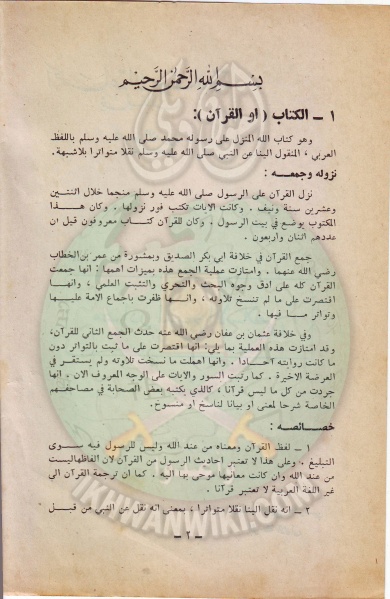 بسم الله الرحمن الرحيم
١ ــ الكتاب ( او القرآن ) :
وهو كتاب الله المنزل على رسوله محمد صلى الله عليه وسلم باللفظ
العربي ، المنقول الينا عن النبي صلى الله عليه وسلم نقلا متواترا بلاشبهة.
نزوله وجمعه :
نزل القرآن على الرسول صلى الله عليه وسلم منجما خلال اثنتين
وعشرين سنة ونيف . وكانت الايات تكتب فور نزولها . وكان هــذا
المكتوب يوضع في بيت الرسول . وكان للقرآن كتــاب معروفون قيل ان
عددهم اثنان واربعون .
جمع القرآن في خلافة ابي بكر الصديق وبمشورة من عمر بن الخطاب
رضي الله عنهما . وامتازت عملية الجمع هذه بميزات اهمها : انها جمعت
القرآن كله على ادق وجوه البحث والتحري والتثبت العلمي ، وانهــا
اقتصرت على ما لم تنسخ تلاوته ، وانها ظفرت باجماع الامة عليهــا
وتواتر مــا فيهــا .
وفي خلافة عثمان بن عفان رضي الله عنه حدث الجمع الثاني للقرآن،
وقد امتازت هذه العملية بما يلي: انها اقتصرت على ما ثبت بالتواتر دون
ما كانت روايته آحــادا . وانها اهملت ما نسخت تلاوته ولم يستقر في
العرضة الاخيرة . كما رتبت السور والايات على الوجه المعروف الان . انها
جردت من كل ما ليس قرآنا ، كالذي يكتبه بعض الصحابة في مصاحفهم
الخاصة شرحا لمعنى او بيانا لناسخ او منسوخ.
خصــائصــه :
١ ــ لفظ القرآن ومعناه من عند الله وليس للرسول فيه ســوى
التبليغ . وعلى هذا لا تعتبر احاديث الرسول من القرآن لان الفاظهاليست
من عند الله وان كانت معانيها موحى بها اليه . كما ان ترجمة القرآن الى
غير اللغة العربية لا تعتبر قرآنا .
٢ ــ انه نقل الينا نقلا متواترا ، بمعنى انه نقل عن النبي من قبــل
ــ ٢ ــ
IKHWANWIKI.COM